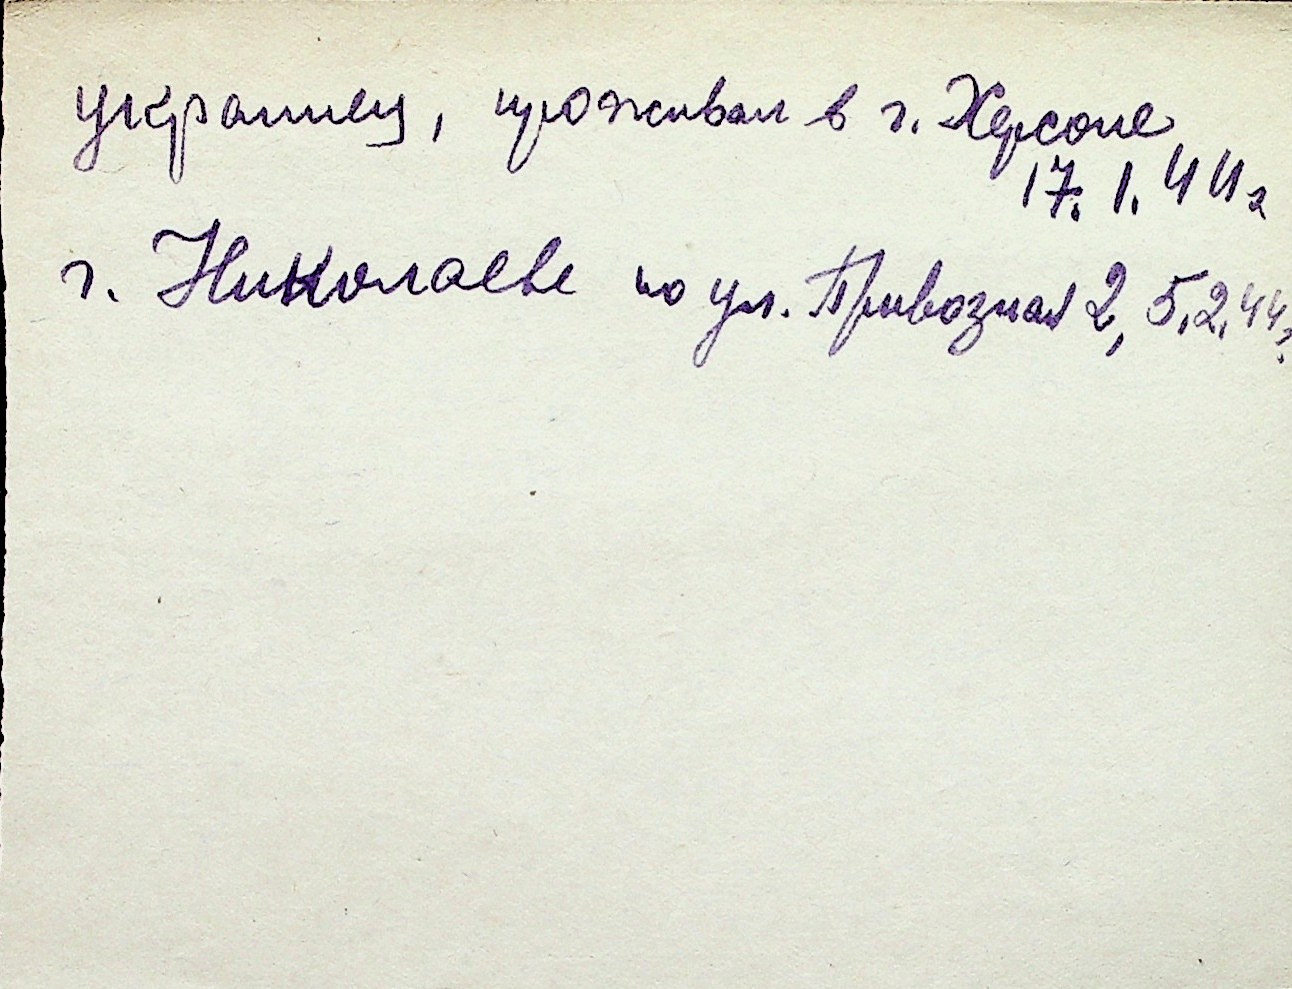 украинец, проживал в г. Херсоне
17.1.44г
г. Николаеве по ул. Привозная 2, 5.2.44г.